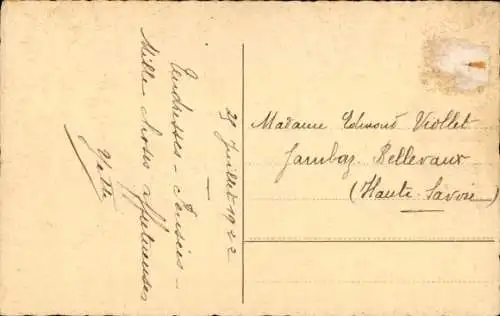 29 Juillet 1922
Tendresses - Pensées -
Mille choses affectueuses
Madame Edmond Viollet
Jambaz. Bellevaux
(Haute-Savoie)